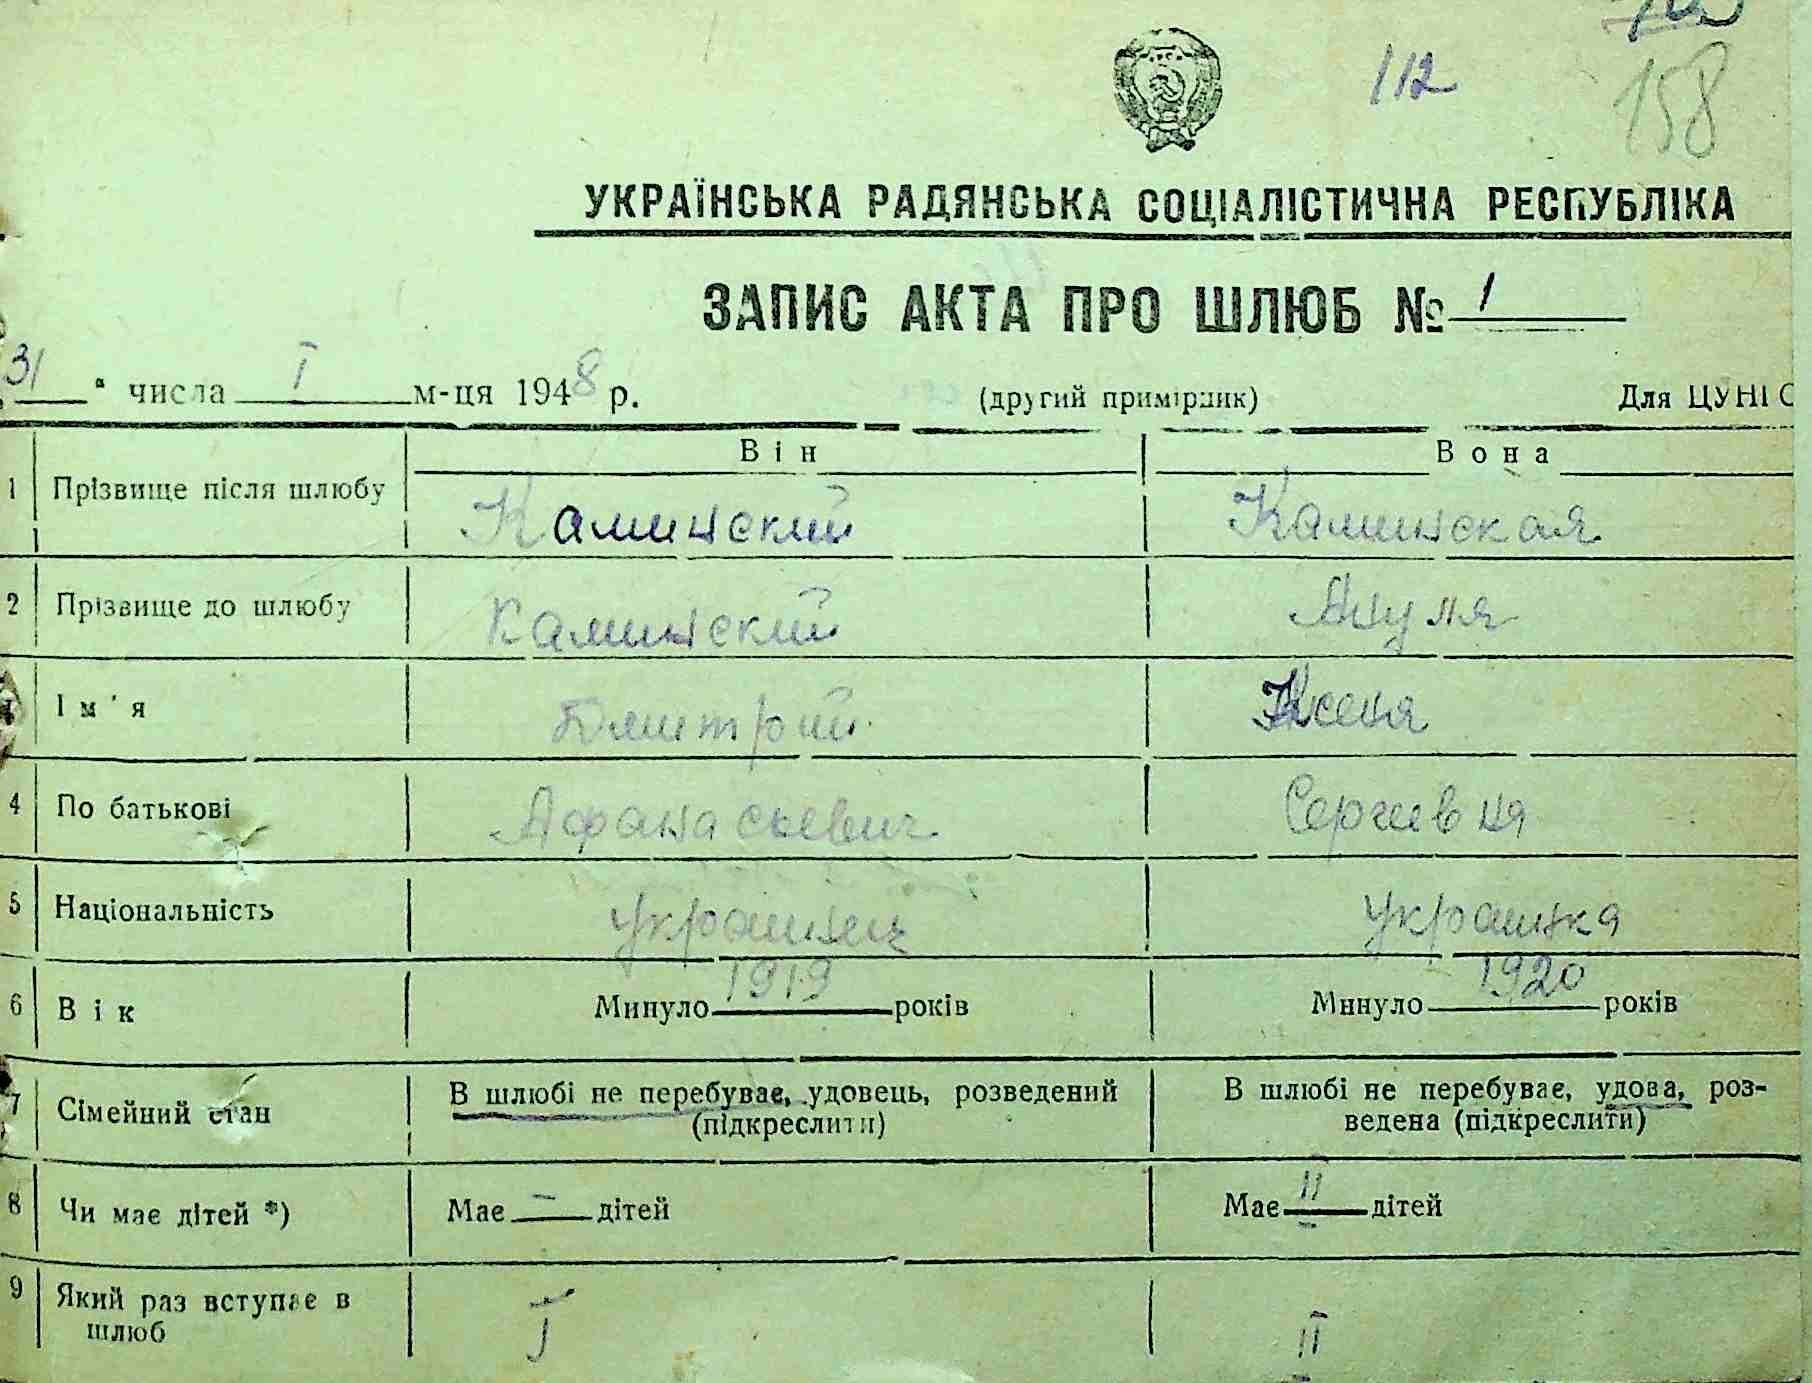 112
158
УКРАЇНСЬКА РАДЯНСЬКА СОЦІАЛІСТИЧНА РЕСПУБЛІКА
ЗАПИС АКТА ПРО ШЛЮБ № 1
31 " числа I м-ця 1948 р. (другий примірник) Для ЦУНГО
Він Вона
1 Прізвище після шлюбу Каминский Каминская
2 Прізвище до шлюбу Каминский
Ім'я Дмитрий Ксеня
4 По батькові Афанасьевич Сергеевна
5 Національність украинец украинка
6 Вік Минуло 1919 років Минуло 1920 років
7 Сімейний стан В шлюбі не перебуває, удовець, розведений (підкреслити) В шлюбі не перебуває, удова, розведена (підкреслити)
8 Чи має дітей *) Має — дітей Має II дітей
9 Який раз вступає в шлюб I II